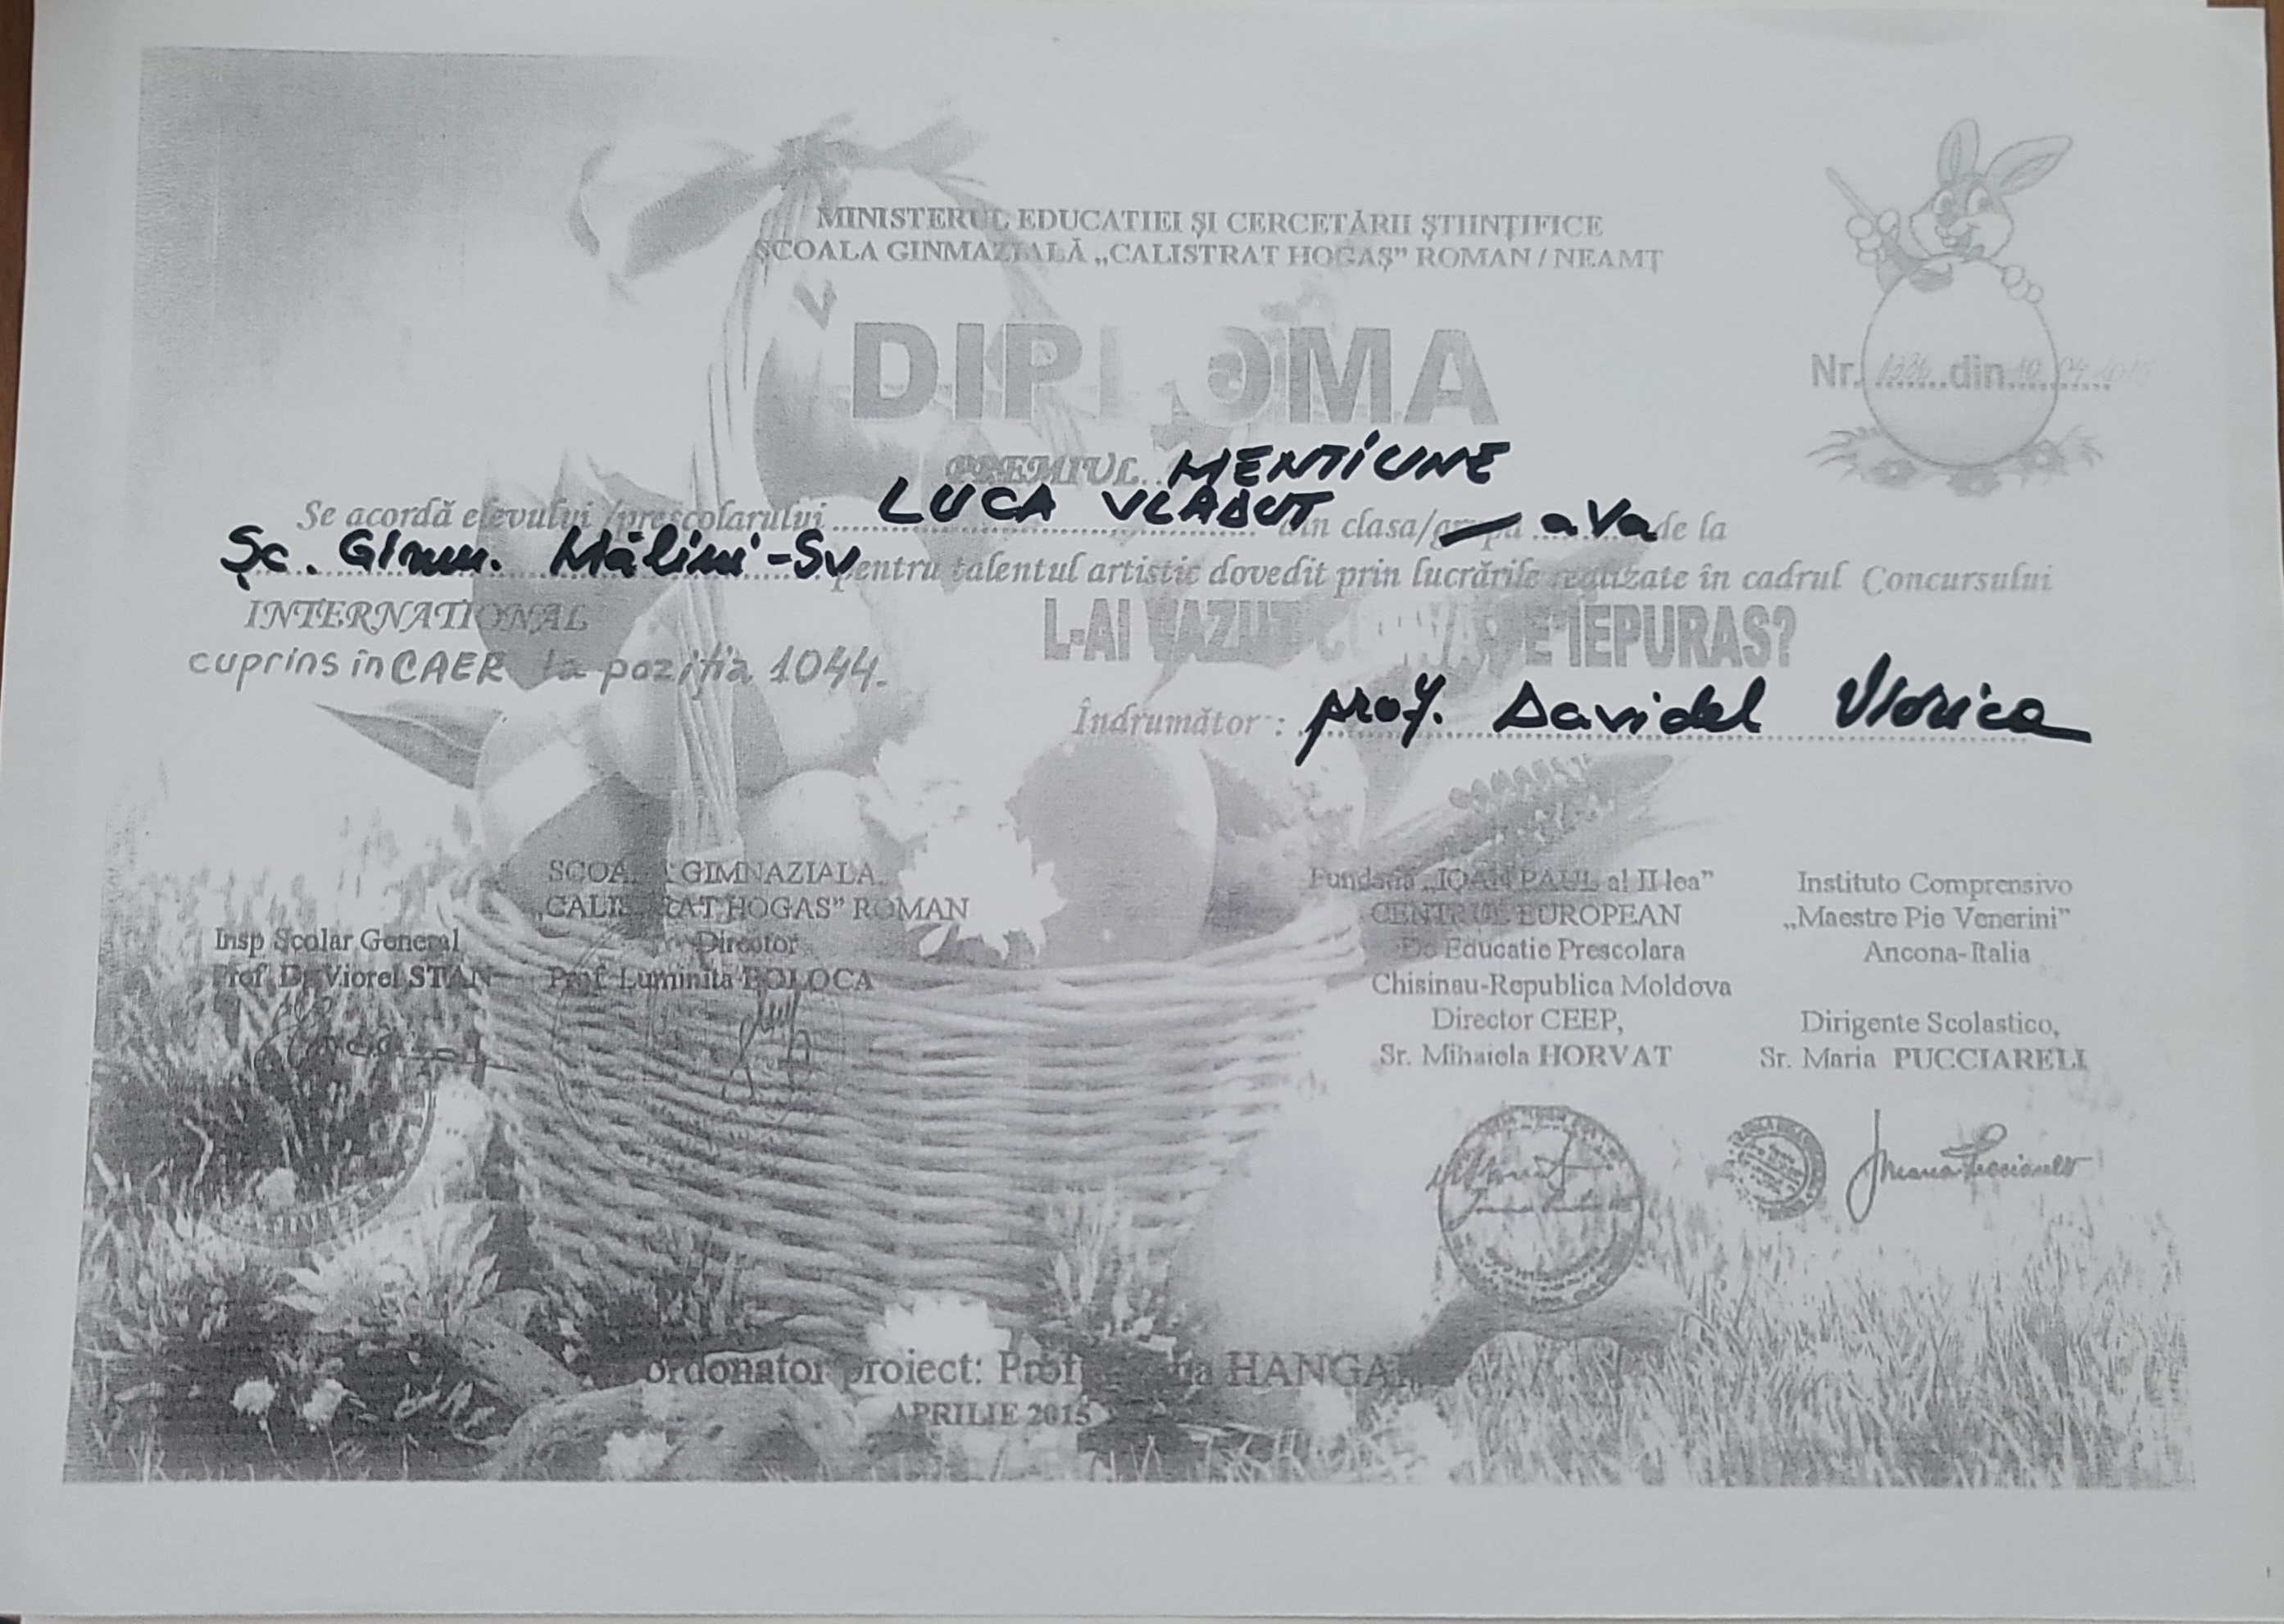 MINISTERUL EDUCATIEI ŞI CERCETĂRII ŞTIINŢIFICE
ŞCOALA GINMAZIALĂ „CALISTRAT HOGAŞ” ROMAN / NEAMŢ
DIPLOMA
Nr. din
PREMIUL MENTIUNE
Se acordă elevului /preşcolarului LUCA VLADUT din clasa/grupa a Va de la
Şc. Gimn. Mălini-Sv pentru talentul artistic dovedit prin lucrările realizate în cadrul Concursului
INTERNATIONAL L-AI VAZUT CUMVA PE IEPURAS?
cuprins în CAER la poziția 1044.
Îndrumător : prof. Davidel Viorica
SCOALA GIMNAZIALA
„CALISTRAT HOGAS” ROMAN
Director
Prof. Luminita BOLOCA
Insp Scolar General
Prof. Dr. Viorel STAN
Fundatia „IOAN PAUL al II-lea”
CENTRUL EUROPEAN
De Educatie Prescolara
Chisinau-Republica Moldova
Director CEEP,
Sr. Mihaiela HORVAT
Instituto Comprensivo
„Maestre Pie Venerini”
Ancona-Italia
Dirigente Scolastico,
Sr. Maria PUCCIARELI
ordonator proiect: Prof
APRILIE 2015